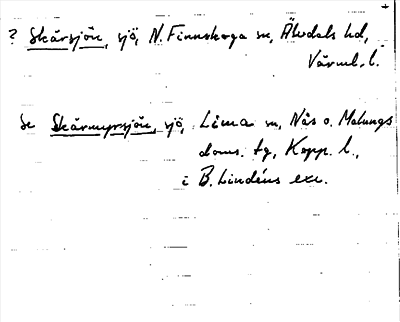 ? Skärsjön, sjö, N. Finnskoga sn, Älvdals hd,
Värml. l.
Se Skärmyrsjön, sjö, Lima sn, Nås o. Malungs
doms. tg, Kopp. l.,
i B. Lindéns exc.